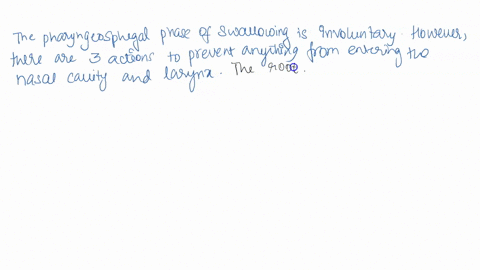 The pharyngeosphegal phase of swallowing is involuntary. However,
there are 3 actions to prevent anything from entering the
nasal cavity and larynx. The